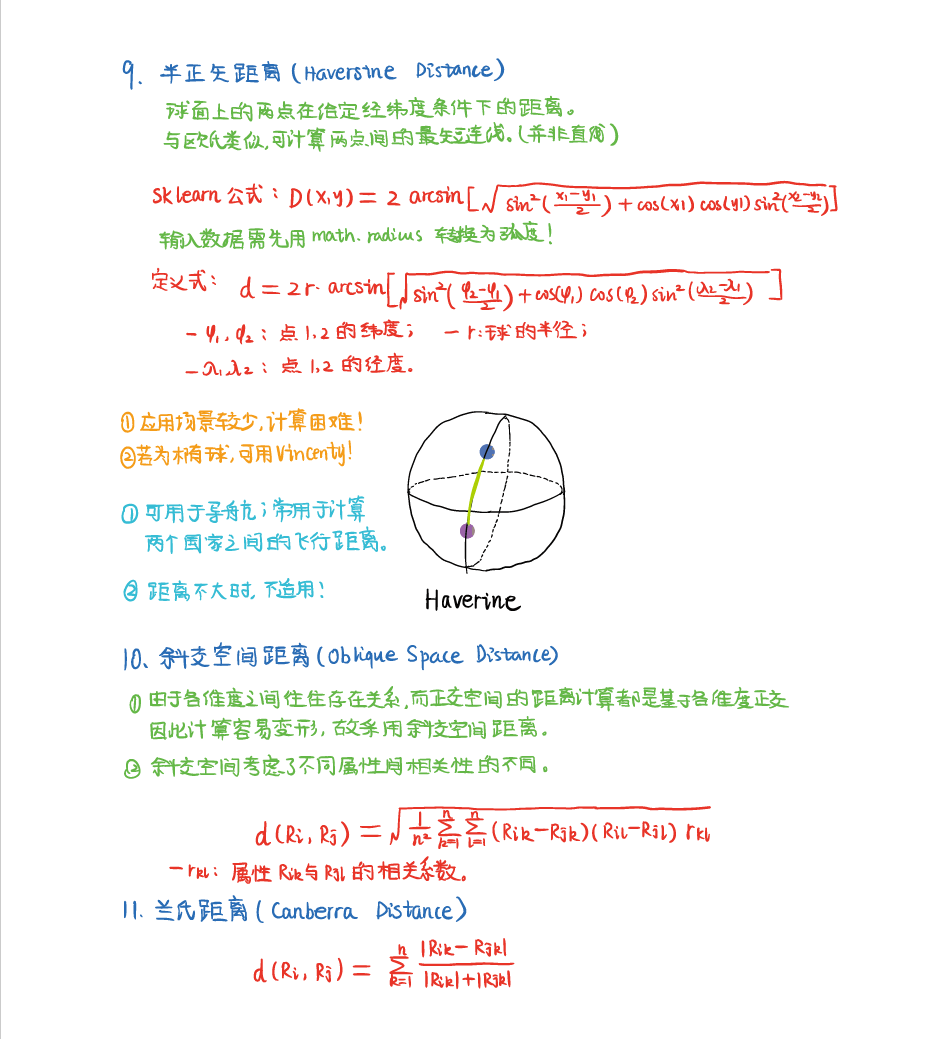 9. 半正矢距离(Haversine Distance)
球面上的两点在给定经纬度条件下的距离。
与欧氏类似,可计算两点间的最短连线。(并非直线)
Sklearn 公式: D(x,y) = 2 arcsin[√(sin²((x₁-y₁)/2) + cos(x₁) cos(y₁) sin²((x₂-y₂)/2))]
输入数据需先用 math.radius 转换为弧度!
定义式: d = 2r· arcsin[√(sin²((φ₂-φ₁)/2) + cos(φ₁) cos(φ₂) sin²((λ₂-λ₁)/2))]
- φ₁, φ₂: 点1,2的纬度; - r:球的半径;
- λ₁,λ₂: 点1,2的经度。
① 应用场景较少,计算困难!
②若为椭球,可用Vincenty!
① 可用于导航;常用于计算
两个国家之间的飞行距离。
② 距离不大时,不适用!
Haverine
10、斜交空间距离(Oblique Space Distance)
① 由于各维度之间往往存在关系,而正交空间的距离计算都是基于各维度正交
因此计算容易变形,故采用斜交空间距离。
② 斜交空间考虑了不同属性间相关性的不同。
d(Ri, Rj) = √(1/n² Σₖ₌₁ⁿ Σₗ₌₁ⁿ (Rik-Rjk)(Ril-Rjl) rkl)
- rkl: 属性 Rik与 Rjl 的相关系数。
11. 兰氏距离(Canberra Distance)
d(Ri, Rj) = Σₖ₌₁ⁿ |Rik-Rjk| / (|Rik|+|Rjk|)